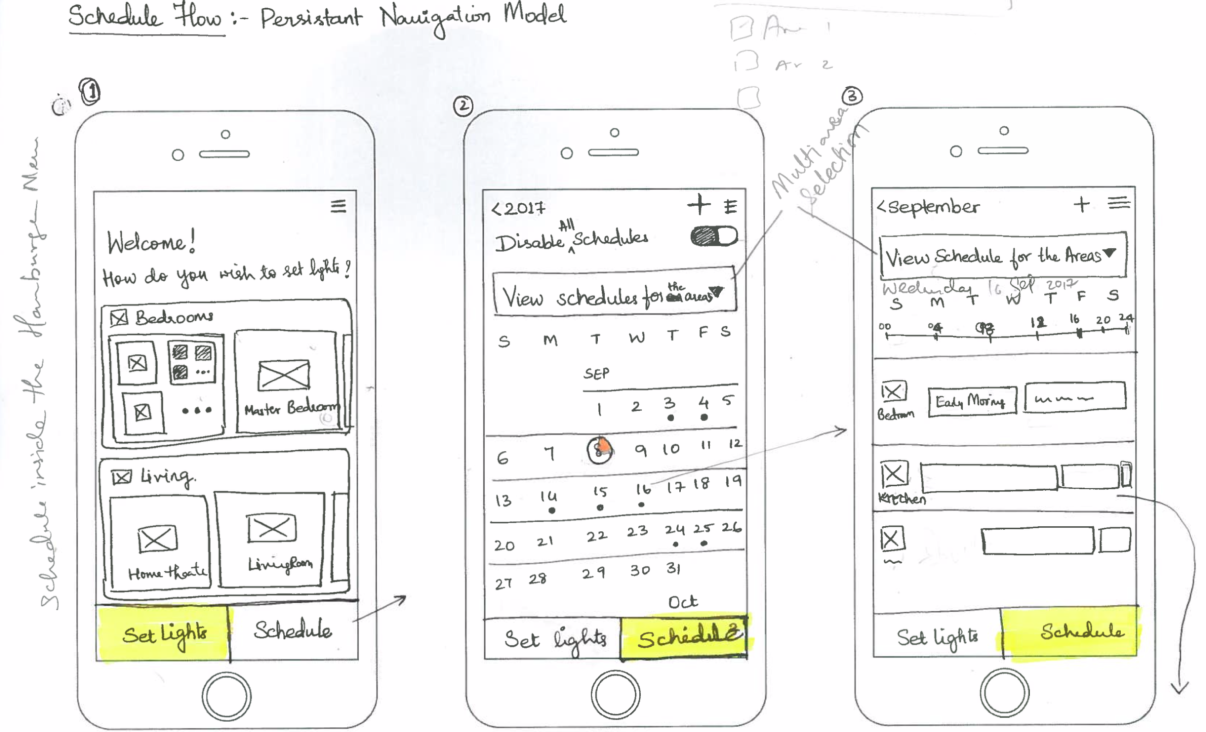 Schedule Flow :- Persistant Navigation Model
Schedule inside the Hamburger Menu
1
Welcome!
How do you wish to set lights?
Bedrooms
Master Bedroom
Living.
Home theate
Living Room
Set Lights
Schedule
2
< 2017
+
Disable All Schedules
View schedules for the areas
S M T W T F S
SEP
1 2 3 4 5
6 7 8 9 10 11 12
13 14 15 16 17 18 19
20 21 22 23 24 25 26
27 28 29 30 31
Oct
Set lights
Schedule
Multi area
Selection
3
< September
+
View Schedule for the Areas
Wednesday 16 Sep 2017
S M T W T F S
00 04 12 16 20 24
Bedroom
Early Moring
Kitchen
Set Lights
Schedule